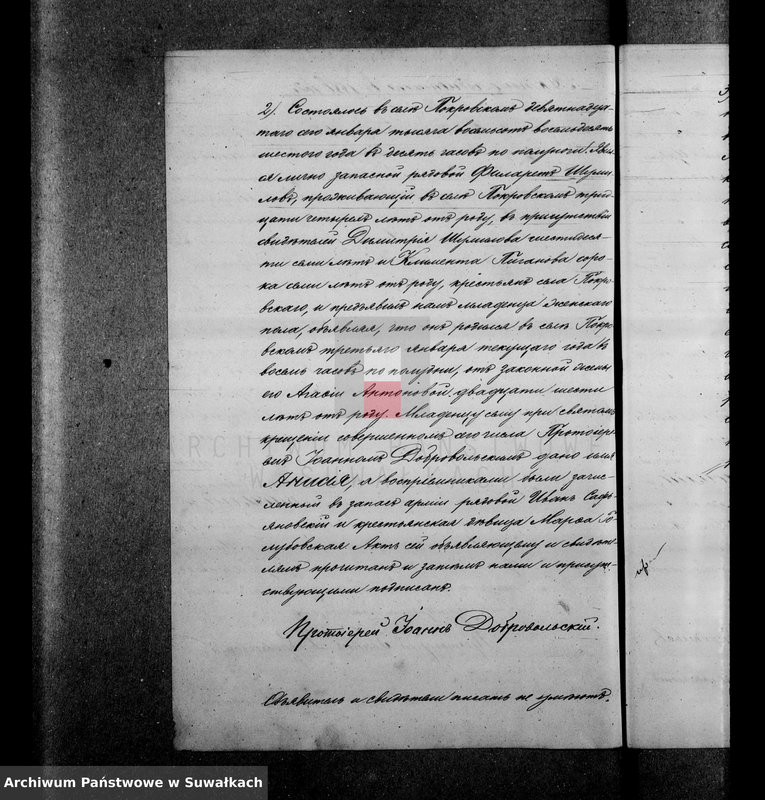 2). Состоялось въ селѣ Покровскомъ девятнадца-
таго сего января тысяча восемьсотъ восемьдесятъ
шестого года въ десять часовъ по полуночи. Явил-
ся лично запасной рядовой Филаретъ Шерши-
ловъ, проживающій въ селѣ Покровскомъ трид-
цати четырехъ лѣтъ отъ роду, въ присутствіи
свидѣтелей Димитрія шестидеся-
ти семи лѣтъ и Климента Пиганова соро-
ка семи лѣтъ отъ роду, крестьянъ села Покро-
вскаго, и предъявилъ намъ младенца женскаго
пола, объявляя, что онъ родился въ селѣ Покро-
вскомъ третьяго января текущаго года въ
восемь часовъ по полудни, отъ законной жены
его Агафіи Антоновой двадцати шести
лѣтъ отъ роду. Младенцу сему при святомъ
крещеніи совершенномъ сего числа Протоіере-
емъ Іоанномъ Добровольскимъ дано имя
Анисія, а воспріемниками были зачис-
ленный въ запасъ арміи рядовой Иванъ
и крестьянская дѣвица Марѳа Го-
лубовская Актъ сей объявляющему и свидѣте-
лямъ прочитанъ и затѣмъ нами и присут-
ствующими подписанъ.
Протоіерей Іоаннъ Добровольскій.
Объявитель и свидѣтели писать не умѣютъ.
ARCHIWUM PAŃSTWOWE
W SUWAŁKACH
Archiwum Państwowe w Suwałkach